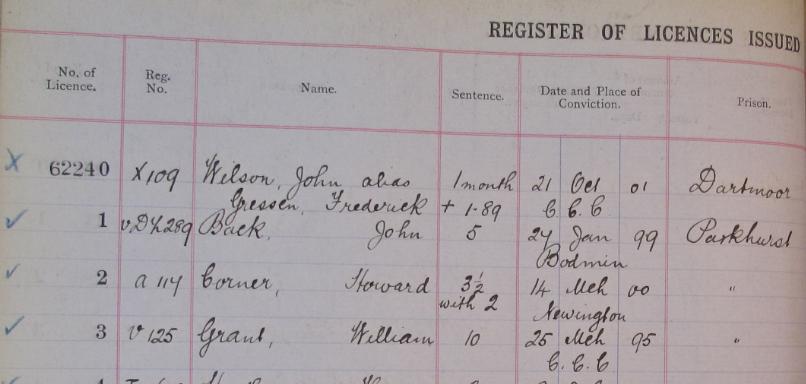 REGISTER OF LICENCES ISSUED
No. of Licence. Reg. No. Name. Sentence. Date and Place of Conviction. Prison.
62240 X109 Wilson, John alias 1 month 21 Oct 01 Dartmoor
Gressen, Frederick + 1-89 C.C.C
1 289 Back, John 5 24 Jan 99 Parkhurst
Bodmin
2 a 114 Corner, Howard 3½ 14 Mch 00 "
with 2 Newington
3 V 125 Grant, William 10 25 Mch 95 "
C.C.C